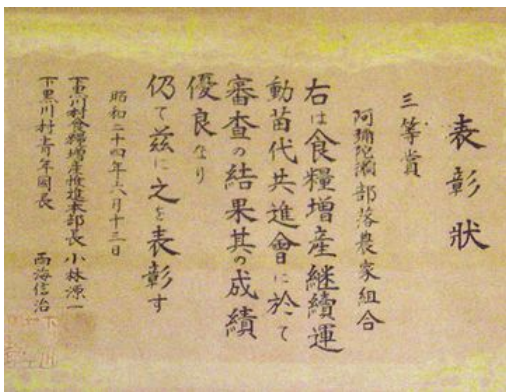 表彰狀
三等賞
阿彌陀瀬部落農家組合
右は食糧增産継續運
動苗代共進會に於て
審查の結果其の成績
優良なり
仍て茲に之を表彰す
昭和二十四年六月十三日
下黒川村食糧増産推進本部長 小林源一
下黒川村青年團長 西海信治